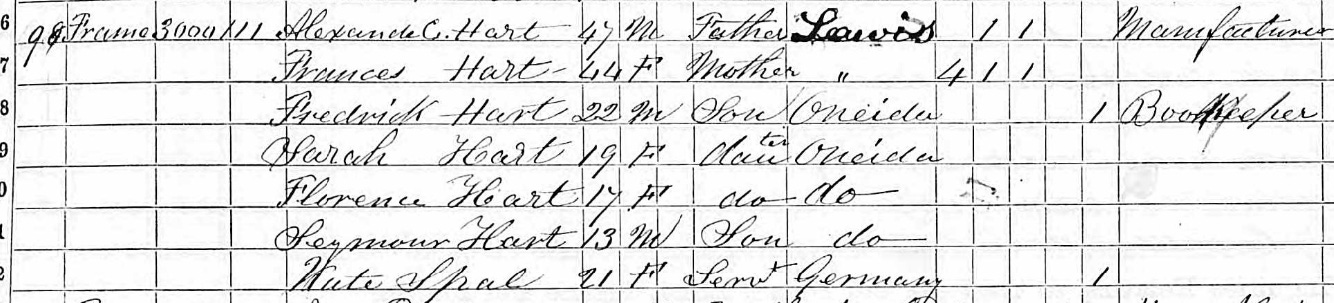 6 98 Frame 3000 111 Alexande C. Hart 47 M Father Lewis 1 1 Manufacturer
7 Frances Hart 44 F Mother " 4 1 1
8 Fredrick Hart 22 M Son Oneida 1 Bookkeeper
9 Sarah Hart 19 F dauter Oneida
0 Florence Hart 17 F do do
1 Seymour Hart 13 M Son do
2 Kate 21 F Servt Germany 1